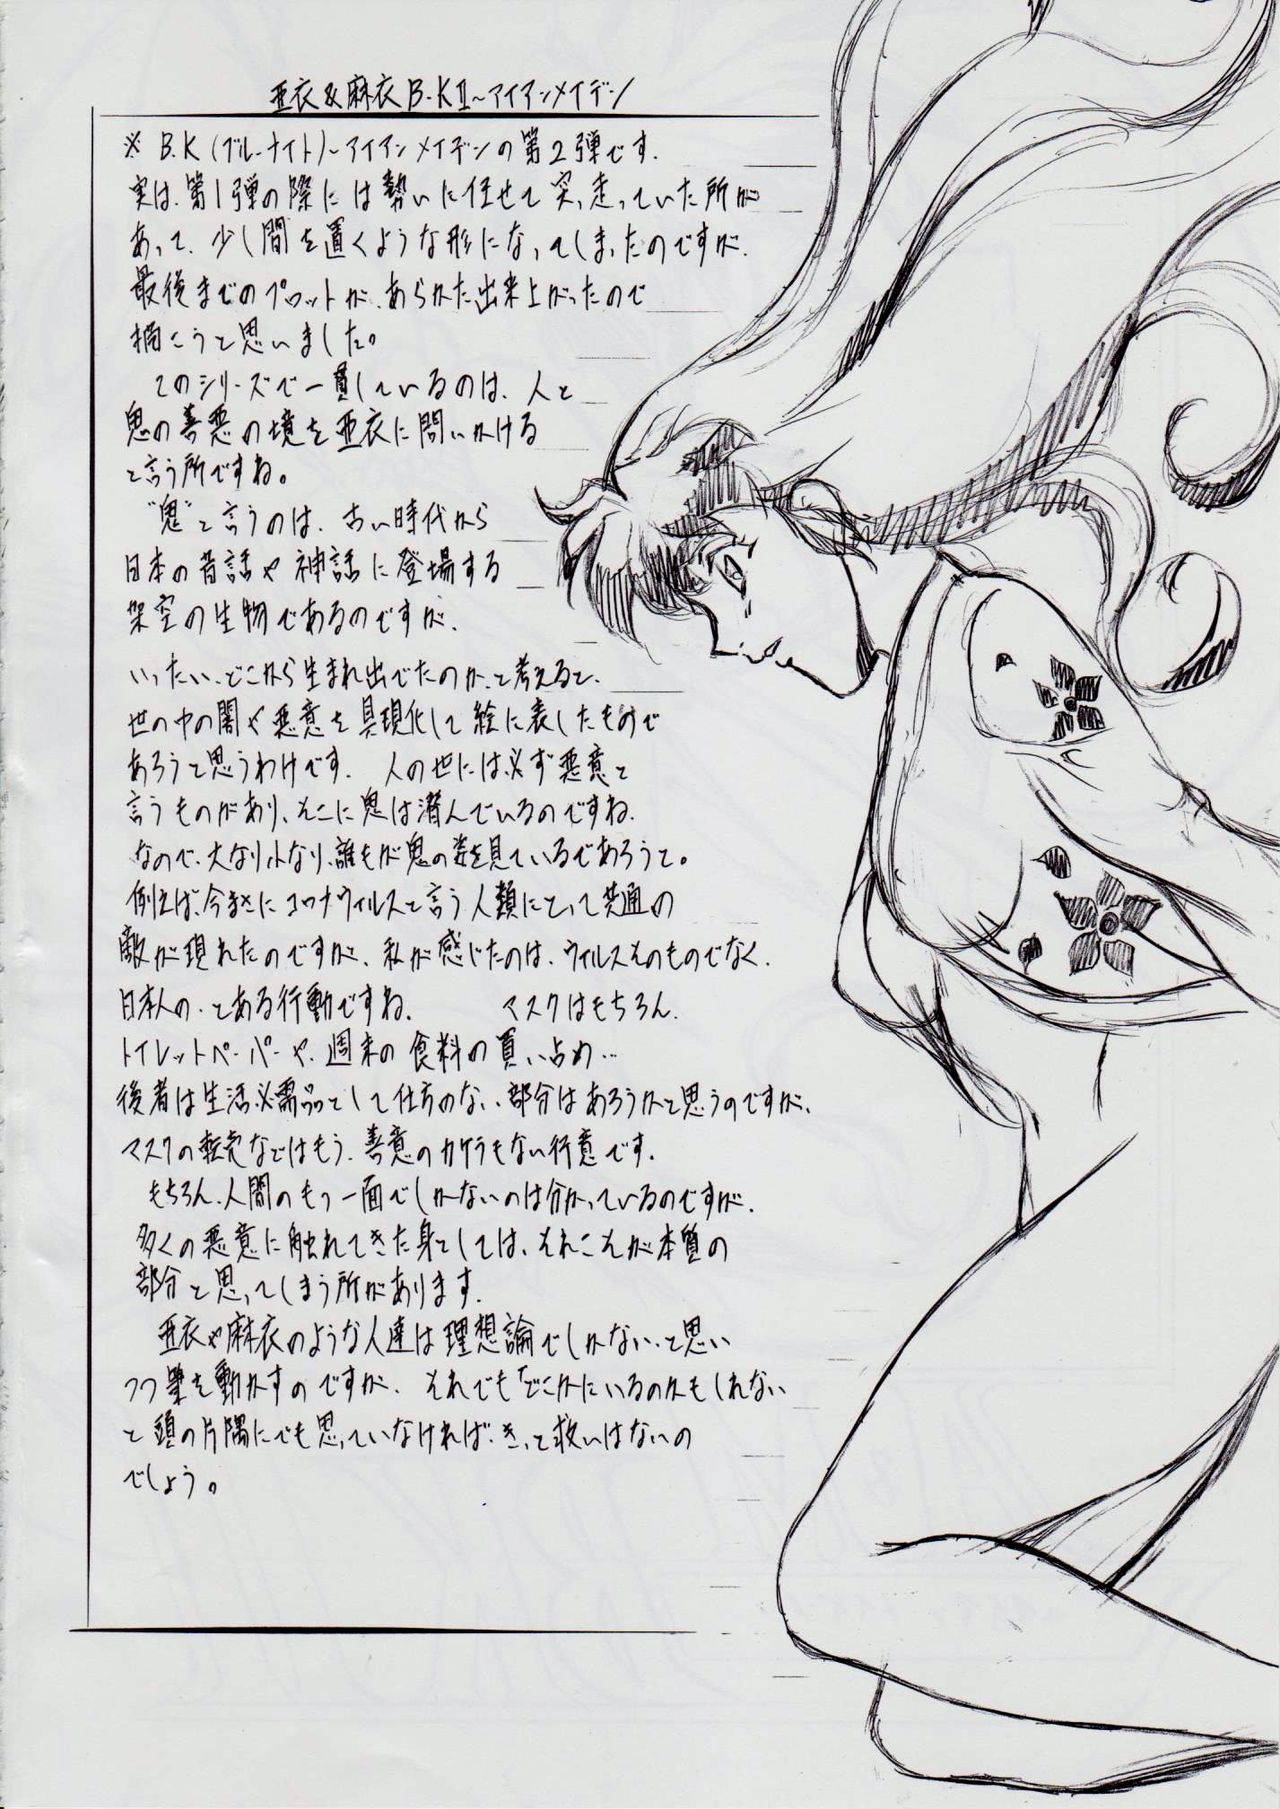 亜衣&麻衣B.KⅡ~アイアンメイデン
※ B.K(ブルーナイト)~アイアンメイデンの第2弾です.
実は、第1弾の際には勢いに任せて突っ走っていた所が
あって、少し間を置くような形になってしまったのですが.
最後までのプロットが、あらかた出来上がったので
描こうと思いました。
このシリーズで一貫しているのは、人と
鬼の善悪の境を亜衣に問いかける
と言う所ですね。
"鬼"と言うのは、古い時代から
日本の昔話や神話に登場する
架空の生物であるのですが.
いったい、どこから生まれ出でたのか、と考えると、
世の中の闇や悪意を具現化して絵に表したもので
あろうと思うわけです. 人の世には必ず悪意と
言うものがあり、そこに鬼は潜んでいるのですね.
なので、大なり小なり、誰もが鬼の姿を見ているであろうと。
例えば、今まさにコロナウィルスと言う人類にとって共通の
敵が現れたのですが、私が感じたのは、ウィルスそのものでなく.
日本人の、とある行動ですね. マスクはもちろん.
トイレットペーパーや、週末の食料の買い占め…
後者は生活必需品として仕方のない、部分はあろうかと思うのですが、
マスクの転売などはもう、善意のカケラもない行意です.
もちろん、人間のもつ一面でしかないのは分かっているのですが.
多くの悪意に触れてきた身としては、それこそが本質の
部分と思ってしまう所があります.
亜衣や麻衣のような人達は理想論でしかない、と思い
つつ筆を動かすのですが、それでも「どこかにいるのかもしれない
と頭の片隅にでも思っていなければ、きっと救いはないの
でしょう。